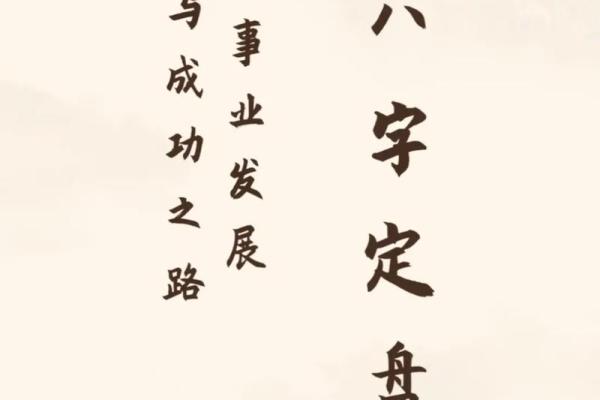 八字定盘
事业发展
与成功之路